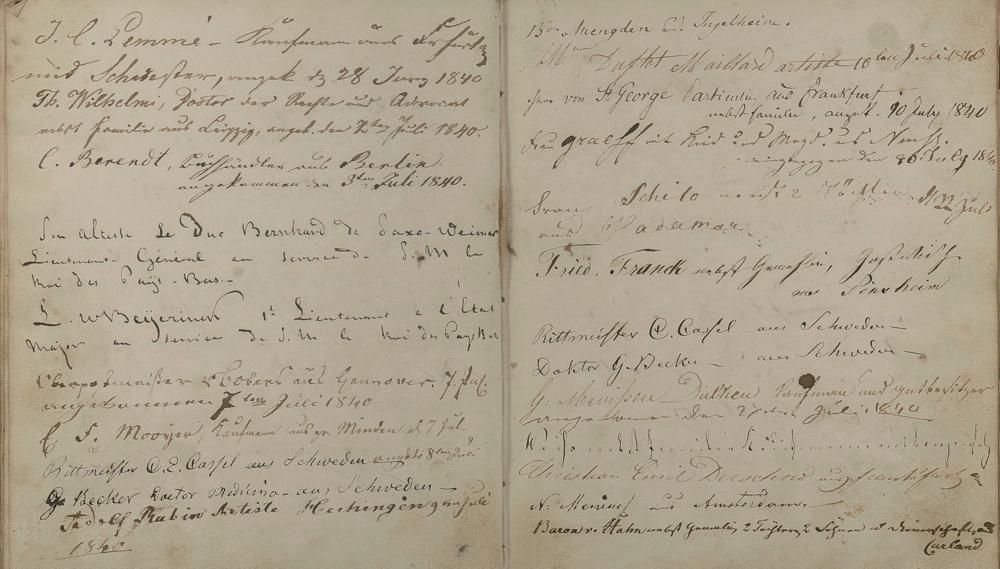 J. C. Lemmé - Kaufmann aus Erfurt
und Schwester, angek. d. 28 Juny 1840
Th. Wilhelmi, Doctor der Rechte und Advocat
nebst Familie aus Leipzig, angek. den 2ten Juli 1840.
C. Berendt, Buchhändler aus Berlin
angekommen den 3ten Juli 1840.
Son altesse Le Duc Bernhard de Saxe-Weimar
Lieutenant-Général au service de S. M le
Roi des Pays-Bas.
L. W Beijerinck 1r Lieutenant à l'État
Major au service de S. M le Roi des Pays Bas
aus Hannover. 7. Jul.
angekommen 7ten Juli 1840
C. F. Mooyer, Kaufmann aus pr. Minden d. 7 Jul.
Rittmeister C. E. Cassel aus Schweden 8ten Juli
G. Becker Doctor Medicinae aus Schweden
Adolf Rubin Artiste Hechingen 9ten Juli
1840
Bar Mengden aus Ingelheim.
Maillard artiste 10ten Juli 1840
Herr von St George Particulier aus Frankfurt
nebst Familie, angek. 10 July 1840
Frau Graeff mit Kind und Magd aus Neuss.
den July 1840
Frau Schilo nebst 2 Töchter d. 12 Juli
aus Hadamar
Fried. Franck nebst Gemahlin,
aus Sinsheim
Rittmeister C. Cassel aus Schweden
Doktor G. Becker aus Schweden
G. Mevissen Dülken Kaufmann und Gutbesitzer
angekommen den Juli 1840
Christian Emil Derschow aus Frankfurt
aus Amsterdam
Baron v. Hahn nebst Gemalin, 2 Töchter, 2 Söhnen u Dienerschaft, aus
Curland